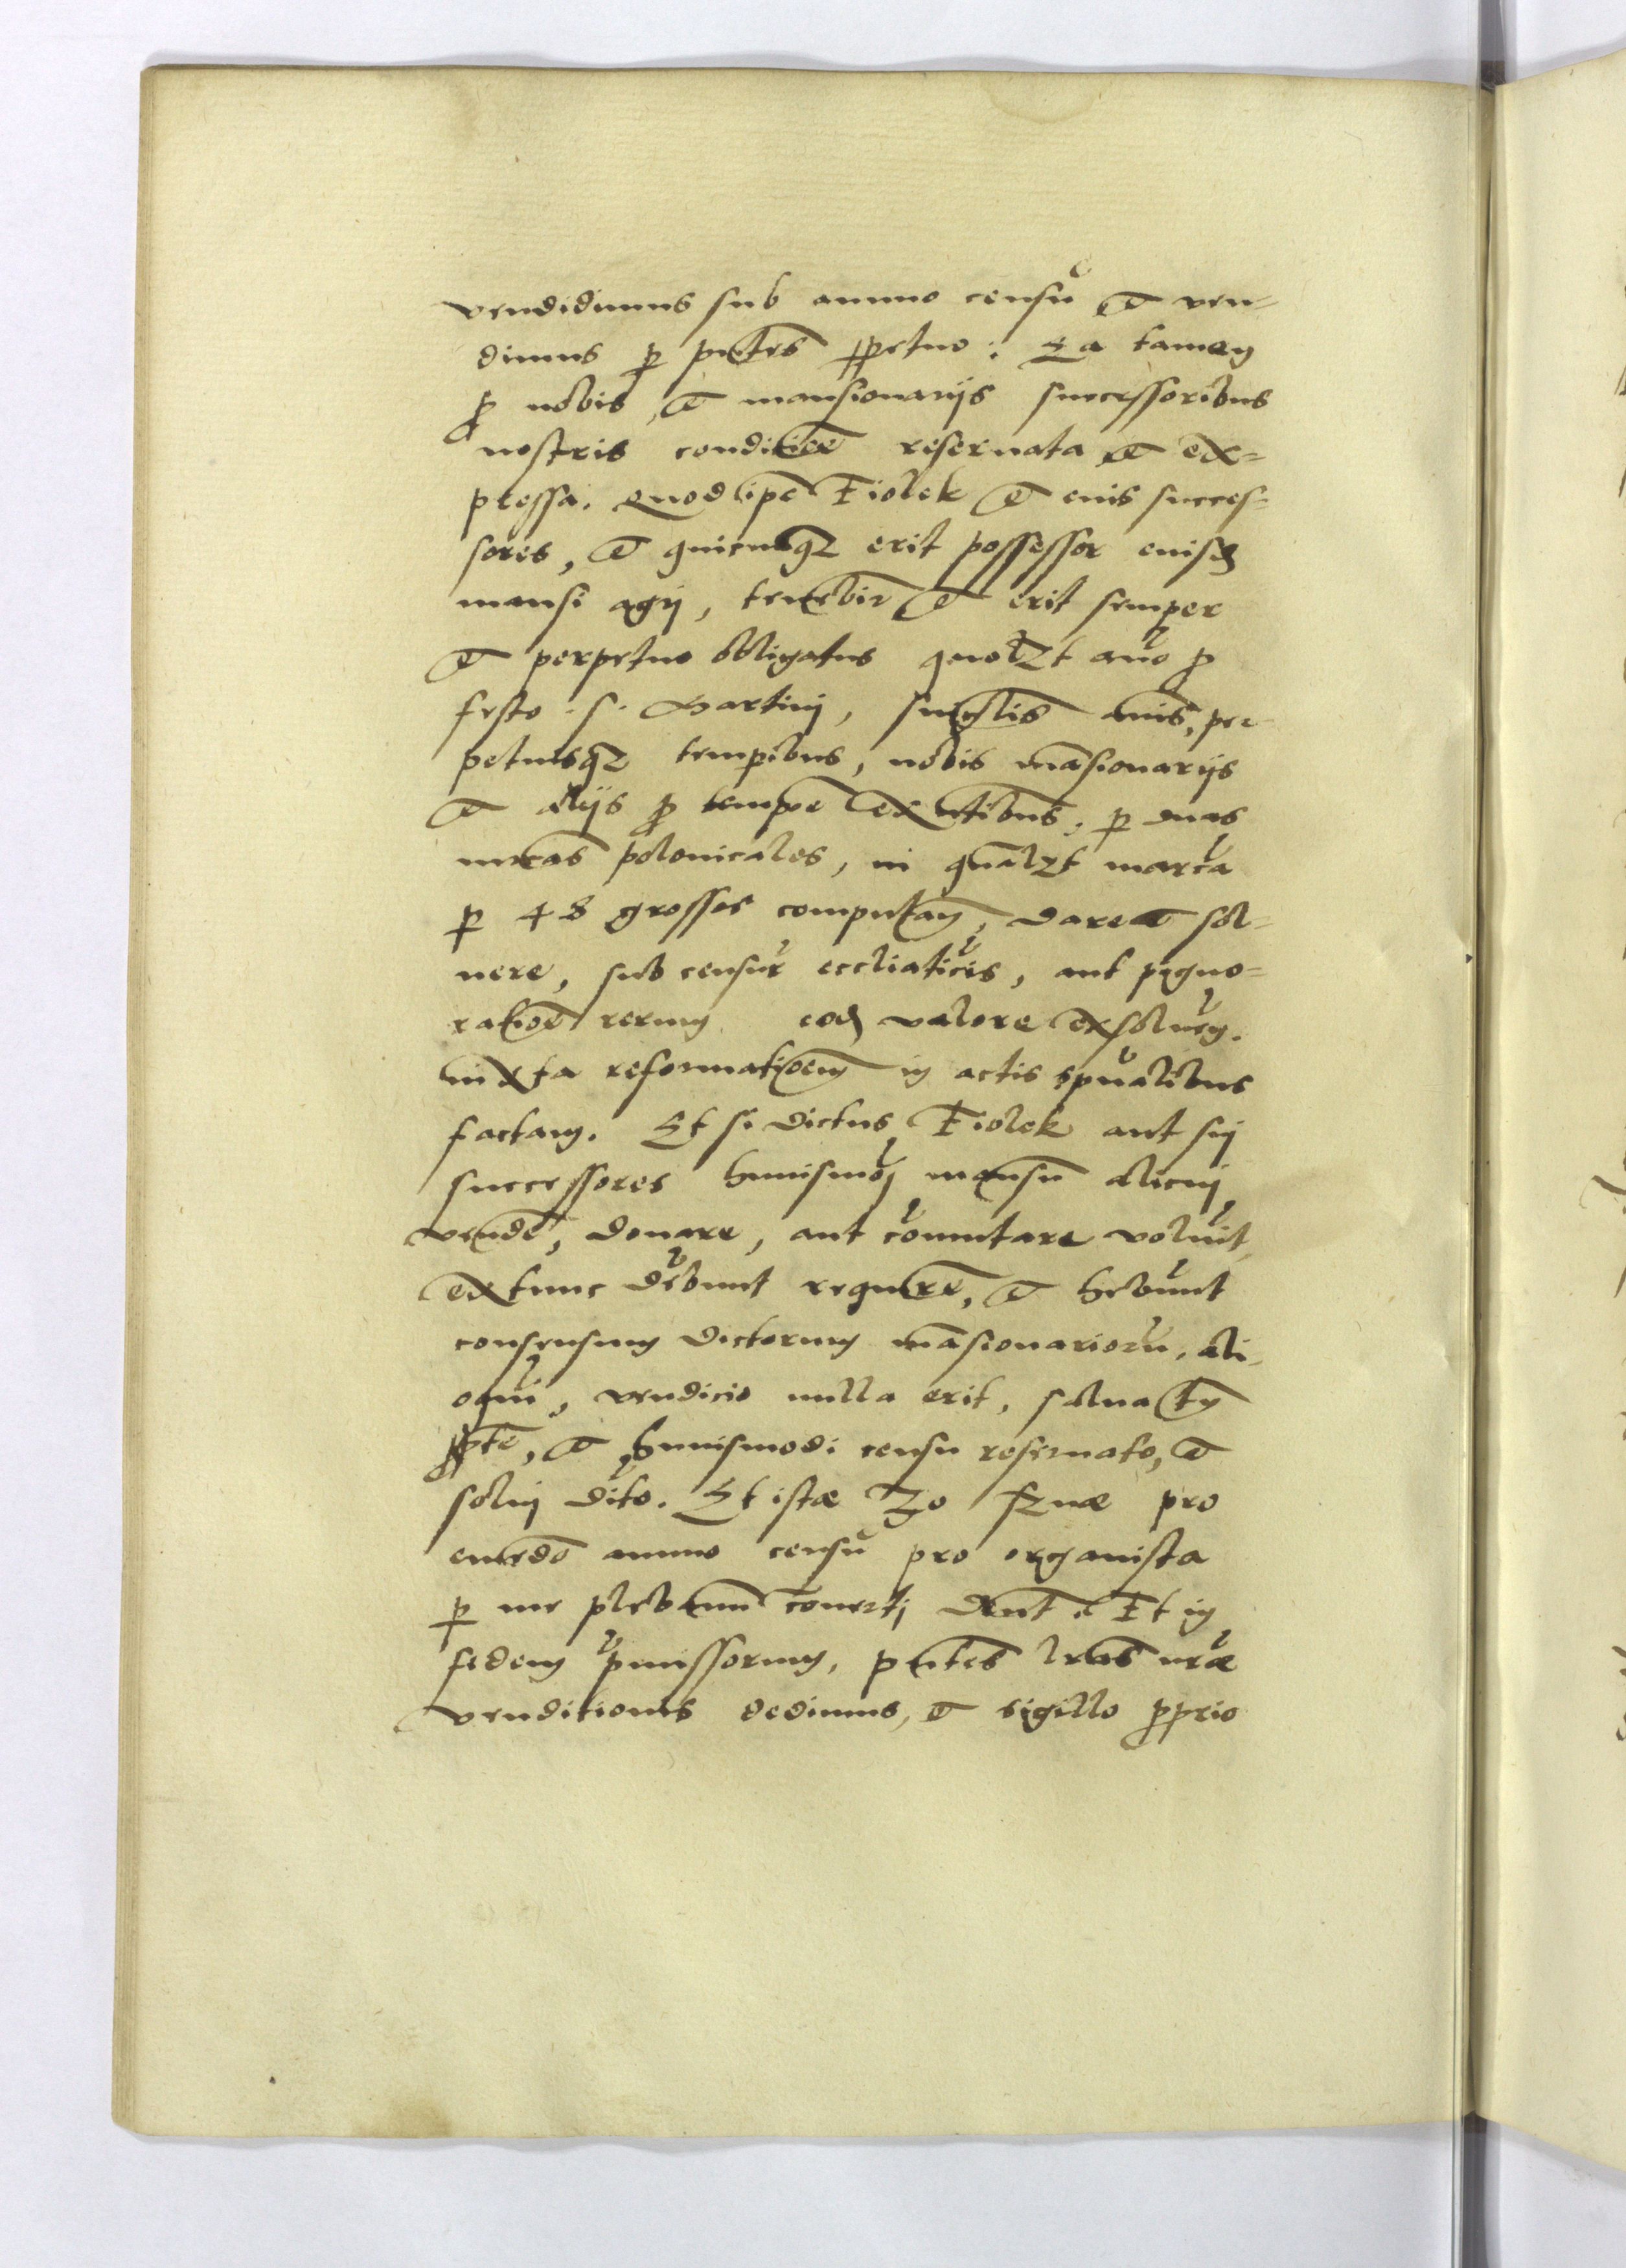 vendidimus sub annuo censu et ven-
dimus p pntes ppetuo: Ea tamen
p nobis, et mansionarijs successoribus
nostris conditioe reservata et ex-
pressa. Quod ipse Fiolek et euis succes-
sores, et quicunq erit possessor euisd
mansi agri, tenebit et erit semper
et perpetuo obligatus quolzt ano p
festo S. Martini, singlis anis, per
petuisq tempibus, nobis masionarijs
et alijs p tempe exntibus, p duas
mrcas polonicales, in qualzt marca
p 48 grosses computan, dare et sol-
uere, sub censur eccliaticis, aut pigno-
ratioe rerum eod valore exsoluen.
iuxta reformatioem in actis spualibus
factam. Et si dictus Fiolek aut sui
successores huiusmoi mansu alicui
vende, donare, aut comutare voluit
extunc debunt requirere, et hebunt
consensum dictorum masionarioru, ali-
oqui, vendicio nulla erit, salua tn
ppte, et huiusmodi censu reseruato, et
solui dito. Et istæ 20 pro
emedo annuo censu pro organista
p me plebanum conuerti dent. Et in
fedem pmissorum, pntes lras nræ
venditionis dedimus, et sigillo pprio